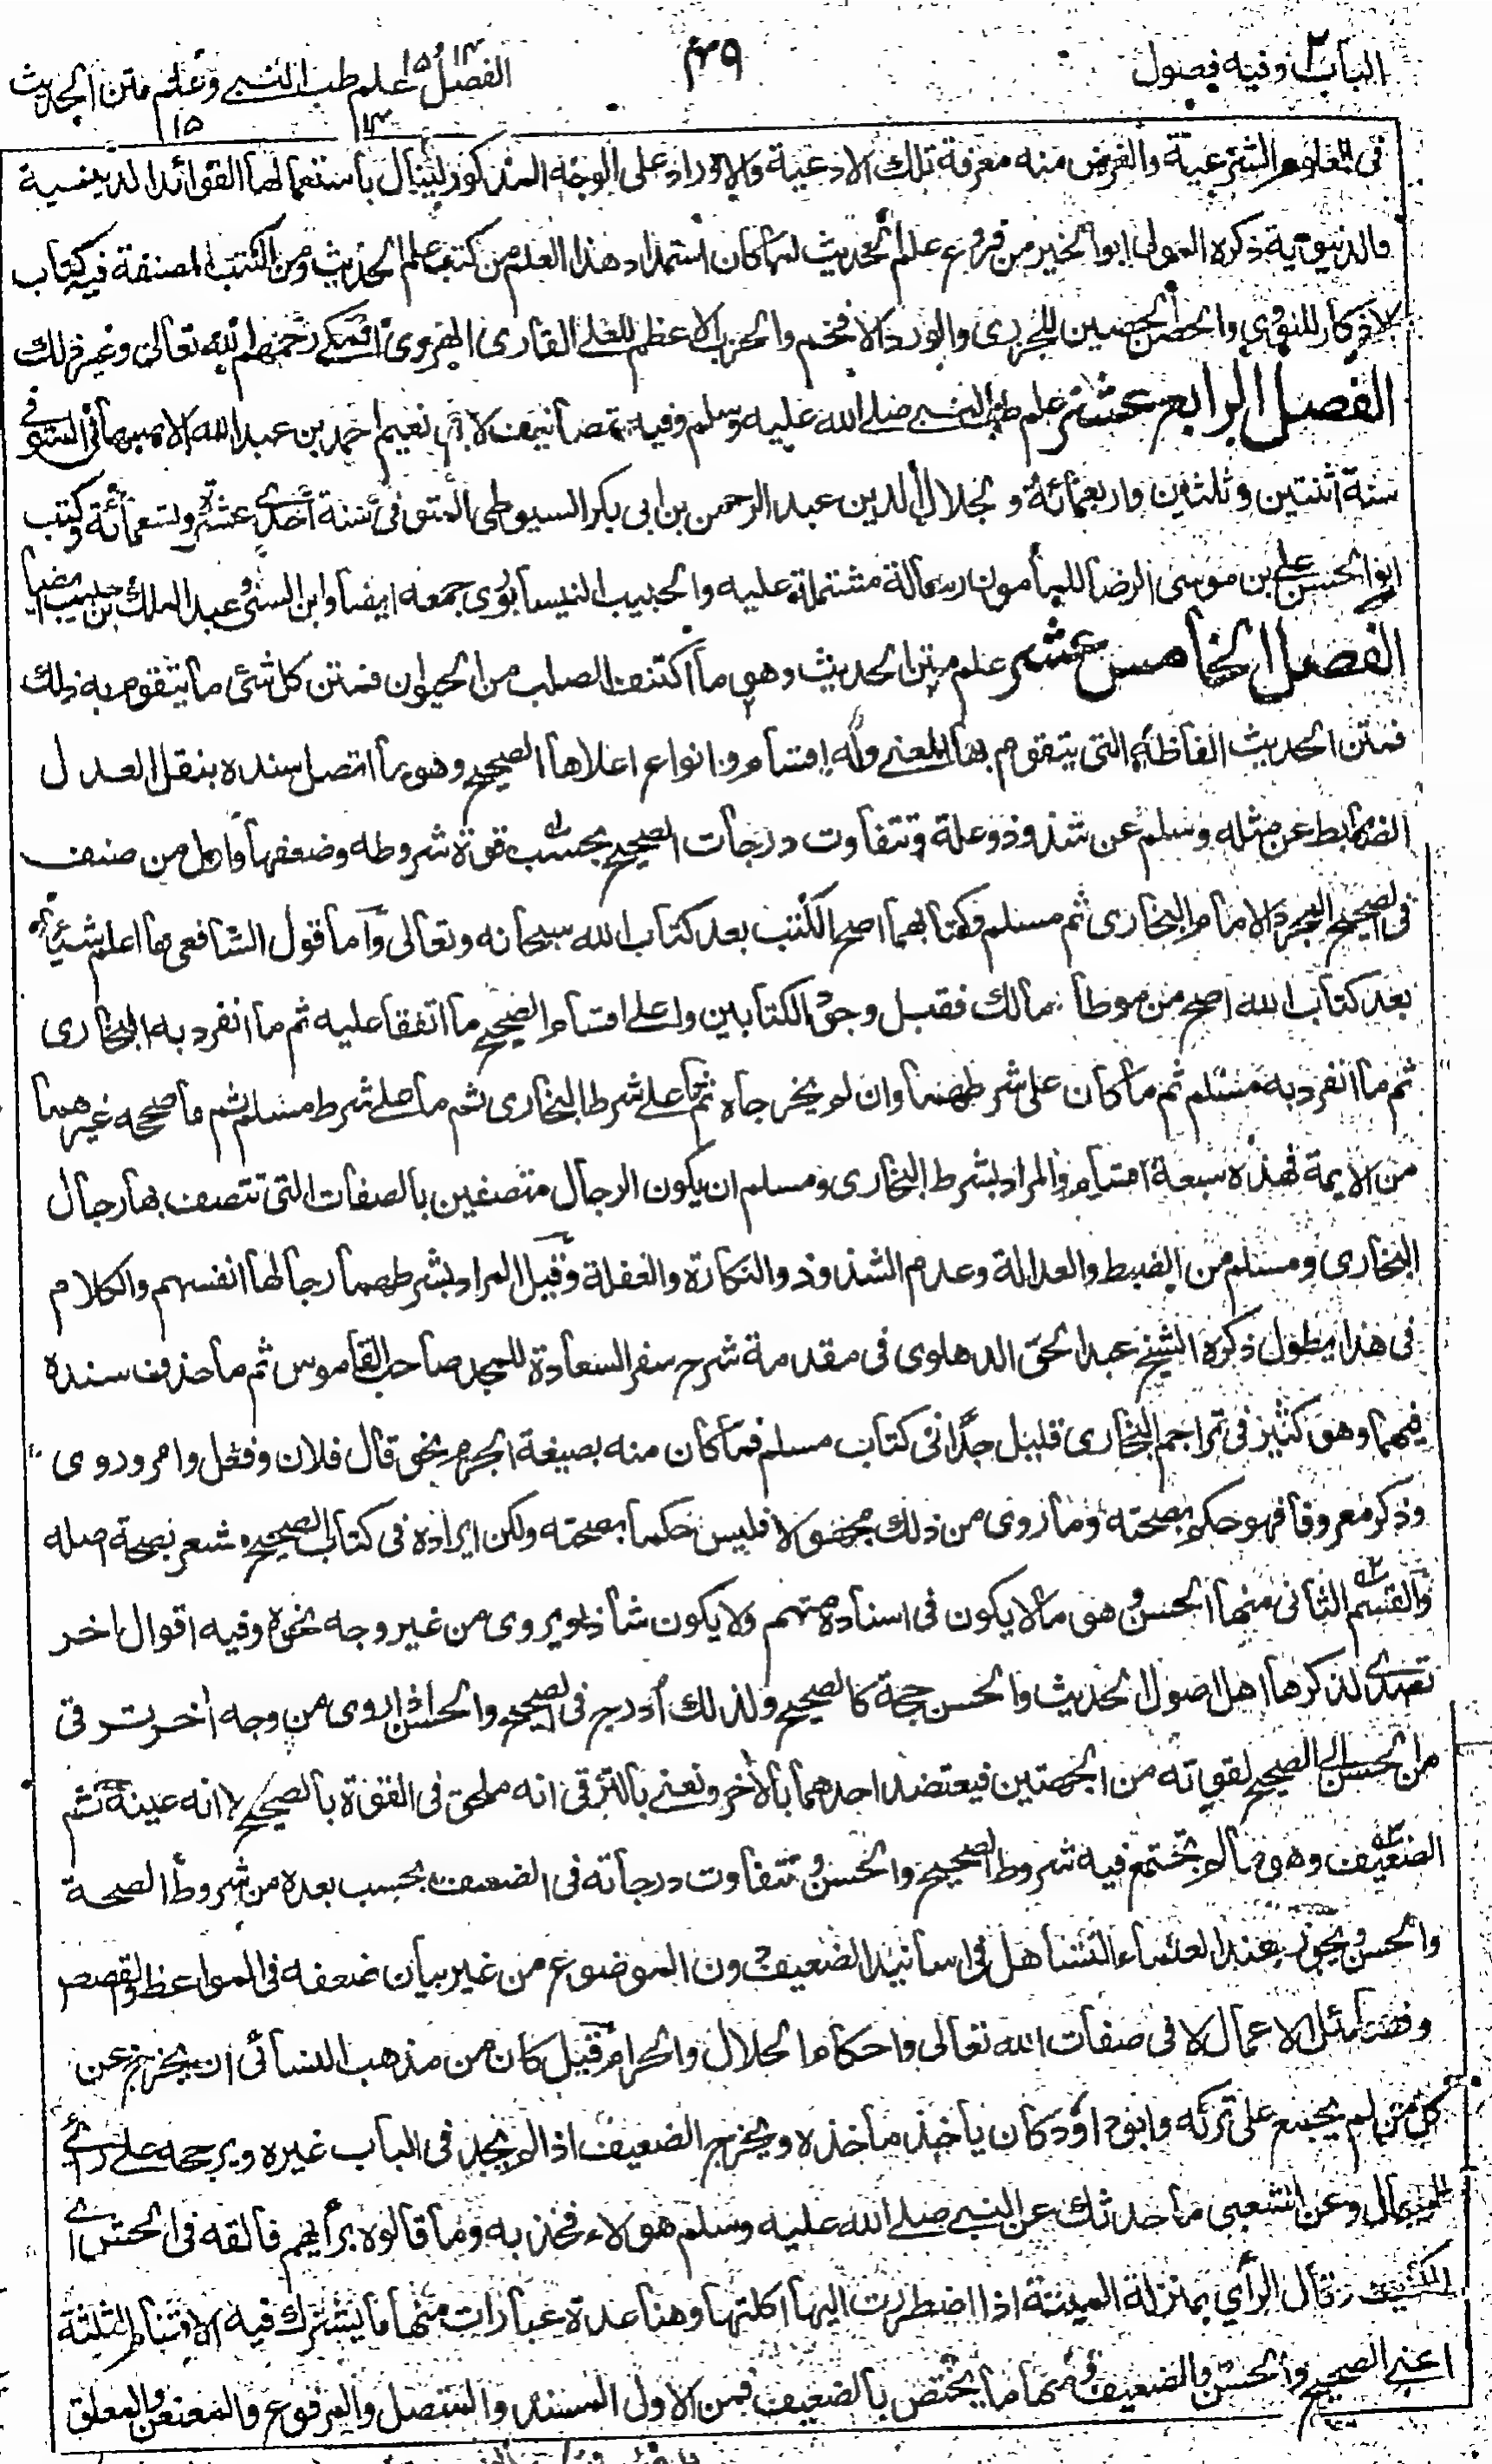 الباب ٢ وفيه فصول
٤٩
الفصل ١٤ و ١٥ علم طب النبي وعلم متن الحديث
١٤ ١٥
في العلوم الشرعية والغرض منه معرفة تلك الادعية والاوراد على الوجه المذكور لينال باستعمالها الفوائد الدينية
والدنيوية ذكره المولى ابو الخير من فروع علم الحديث لما كان استمداد هذا العلم من كتب علم الحديث ومن الكتب المصنفة فيه كتاب
الاذكار للنووي والحصن الحصين للجزري والورد الافخم والحزب الاعظم للعلي القاري الهروي المكي رحمهم الله تعالى وغير ذلك
الفصل الرابع عشر علم طب النبي صلى الله عليه وسلم وفيه تصانيف لابي نعيم احمد بن عبد الله الاصبهاني المتوفى
سنة اثنتين وثلثين واربعمائة ولجلال الدين عبد الرحمن بن ابي بكر السيوطي المتوفى سنة احدى عشرة وتسعمائة وكتب
ابو الحسن علي بن موسى الرضا للمأمون رسالة مشتملة عليه والحبيب النيسابوري جمعه ايضا وابن السني وعبد الملك بن حبيب ايضا
الفصل الخامس عشر علم متن الحديث وهو ما اكتنف الصلب من الحيوان فمتن كل شئ ما يتقوم به ذلك
فمتن الحديث الفاظه التي يتقوم بها المعنى وله اقسام وانواع اعلاها الصحيح وهو ما اتصل سنده بنقل العدل
الضابط عن مثله وسلم عن شذوذ وعلة وتتفاوت درجات الصحيح بحسب قوة شروطه وضعفها واول من صنف
في الصحيح المجرد الامام البخاري ثم مسلم وكتابهما اصح الكتب بعد كتاب الله سبحانه وتعالى واما قول الشافعي ما اعلم شيئا
بعد كتاب الله اصح من موطا مالك فقبل وجود الكتابين واعلى اقسام الصحيح ما اتفقا عليه ثم ما انفرد به البخاري
ثم ما انفرد به مسلم ثم ما كان على شرطهما وان لم يخرجاه ثم ما على شرط البخاري ثم ما على شرط مسلم ثم ما صححه غيرهما
من الايمة فهذه سبعة اقسام والمراد بشرط البخاري ومسلم ان يكون الرجال متصفين بالصفات التي تتصف بها رجال
البخاري ومسلم من الضبط والعدالة وعدم الشذوذ والنكارة والغفلة وقيل المراد بشرطهما رجالها انفسهم والكلام
في هذا يطول ذكره الشيخ عبد الحق الدهلوي في مقدمة شرح سفر السعادة للمجد صاحب القاموس ثم ما حذف سنده
فيهما وهو كثير في تراجم البخاري قليل جدا في كتاب مسلم فما كان منه بصيغة الجزم نحو قال فلان وفعل وامر وروى
وذكر معروفا فهو حكم بصحته وما روى من ذلك مجهولا فليس حكما بصحته ولكن ايراده في كتاب الصحيح مشعر بصحة اصله
والقسم الثاني منها الحسن وهو ما لا يكون في اسناده متهم ولا يكون شاذا ويروى من غير وجه نحوه وفيه اقوال اخر
تصدى لذكرها اهل اصول الحديث والحسن حجة كالصحيح ولذلك ادرج في الصحيح والحسن اذا روى من وجه اخر ترقى
من الحسن الى الصحيح لقوته من الجهتين فيعتضد احدهما بالاخر ونعني بالترقي انه ملحق في القوة بالصحيح لا انه عينه ثم
الضعيف وهو ما لم يجتمع فيه شروط الصحيح والحسن وتتفاوت درجاته في الضعف بحسب بعده من شروط الصحة
والحسن ويجوز عند العلماء التساهل في اسانيد الضعيف دون الموضوع من غير بيان ضعفه في المواعظ والقصص
وفضائل الاعمال لا في صفات الله تعالى واحكام الحلال والحرام قيل كان من مذهب النسائي ان يخرج عن
كل من لم يجمع على تركه وابو داؤد كان ياخذ ماخذه ويخرج الضعيف اذا لم يجد في الباب غيره ويرجحه على راي
الرجال وعن الشعبي ما حدثك عن النبي صلى الله عليه وسلم هولاء فخذ به وما قالوه برأيهم فالقه في الحش ا
وقال الرأي بمنزلة الميتة اذا اضطررت اليها اكلتها وهنا عدة عبارات منها ما يشترك فيه الاقسام الثلثة
اعني الصحيح والحسن والضعيف ومنها ما يختص بالضعيف فمن الاول المسند والمتصل والمرفوع والمعنعن والمعلق